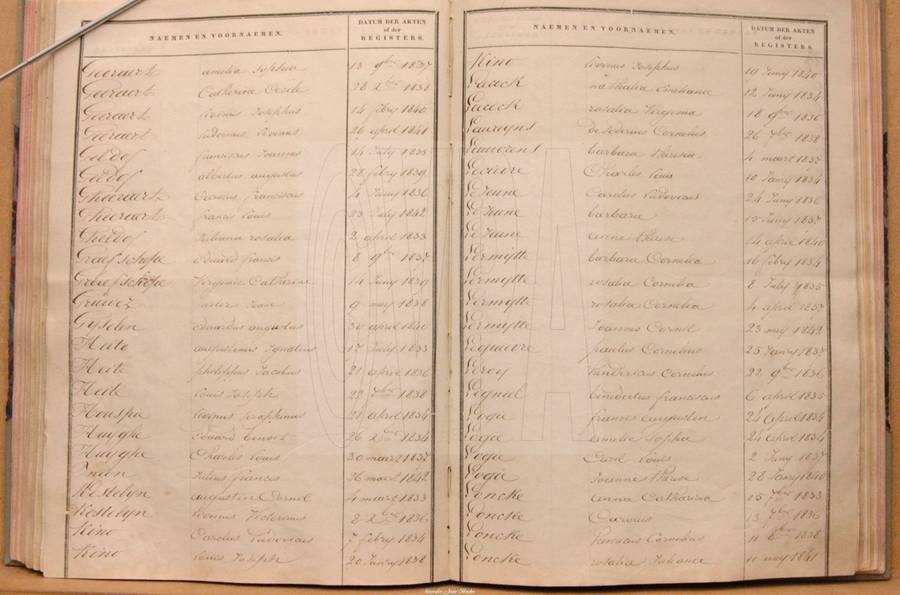 NAEMEN EN VOORNAEMEN.
DATUM DER AKTEN
of der
REGISTERS.
Geeraert amelia Sophia 13 9bre 1837
Geeraert Catharina Cecile 28 Xbre 1838
Geeraert Livinus Josephus 14 febry 1840
Geeraert Ludovicus Livinus 26 april 1841
Geldof Joannes 14 July 1835
Geldof albertus augustus 28 febry 1839
Gheeraert Carolus franciscus 4 Juny 1836
Gheeraert francis Louis 23 July 1842
Gheldof Juliana rosalia 2 april 1833
Graefschepe Eduard francis 8 9bre 1837
Graefschepe Virginie Catharine 14 Juny 1839
Gruwez Jean 9 mey 1838
Gyselen Eduardus augustus 30 april 1840
Heite augustinus Ignatius 17 July 1833
Heite philippus Jacobus 21 april 1836
Heite Louis Joseph 22 1838
Houspie Seraphinus 21 april 1834
Huyghe Eduard Ernest 26 Xbre 1834
Huyghe Charles Louis 30 maart 1837
Julius francis maart 1842
Kestelyn augustin Carnil 4 maart 1833
Kestelyn Livinus Victorinus 8 Xbre 1836
Kino Carolus Ludovicus 7 febry 1834
Kino Louis Joseph 20 Janry 1838
NAEMEN EN VOORNAEMEN.
DATUM DER AKTEN
of der
REGISTERS.
Kino Livinus Josephus 19 Juny 1840
Lacock nathalia Emeliana 12 Juny 1834
Lacock rosalia Virginia 18 9bre 1836
Laureyns Desiderius Cornelius 26 7bre 1838
barbara theresia 4 maart 1837
Charles Louis 10 Janry 1834
LeJeune Carolus Ludovicus 24 Juny 1836
LeJeune barbara 15 Juny 1837
LeJeune anne therese 14 april 1840
Lermytte barbara Cornelia 16 febry 1834
Lermytte rosalia Cornelia 8 July 1835
Lermytte rosalia Cornelia 4 april 1837
Lermytte Joannes Cornel 23 mey 1842
paulus Cornelius 25 Janry 1837
Leroy Cornelius 22 9bre 1836
franciscus 6 april 1835
Logie augustin 24 april 1834
Logie amelie Sophie 24 april 1834
Logie Carel Louis 2 Juny 1837
Logie Joanna therese 28 Janry 1840
Loncke anna Catharina 15 7bre 1833
Loncke Carolus 13 7bre 1836
Loncke Cornelius 11 1838
Loncke rosalia Juliana 11 mey 1841